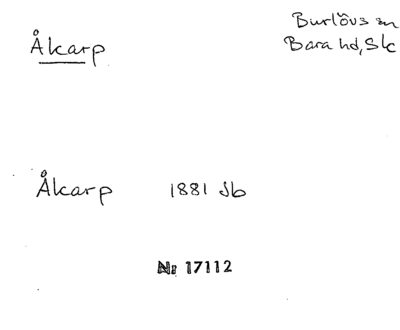 Åkarp
Burlövs sn
Bara hd, Sk
Åkarp 1881 Jb
Nr 17112